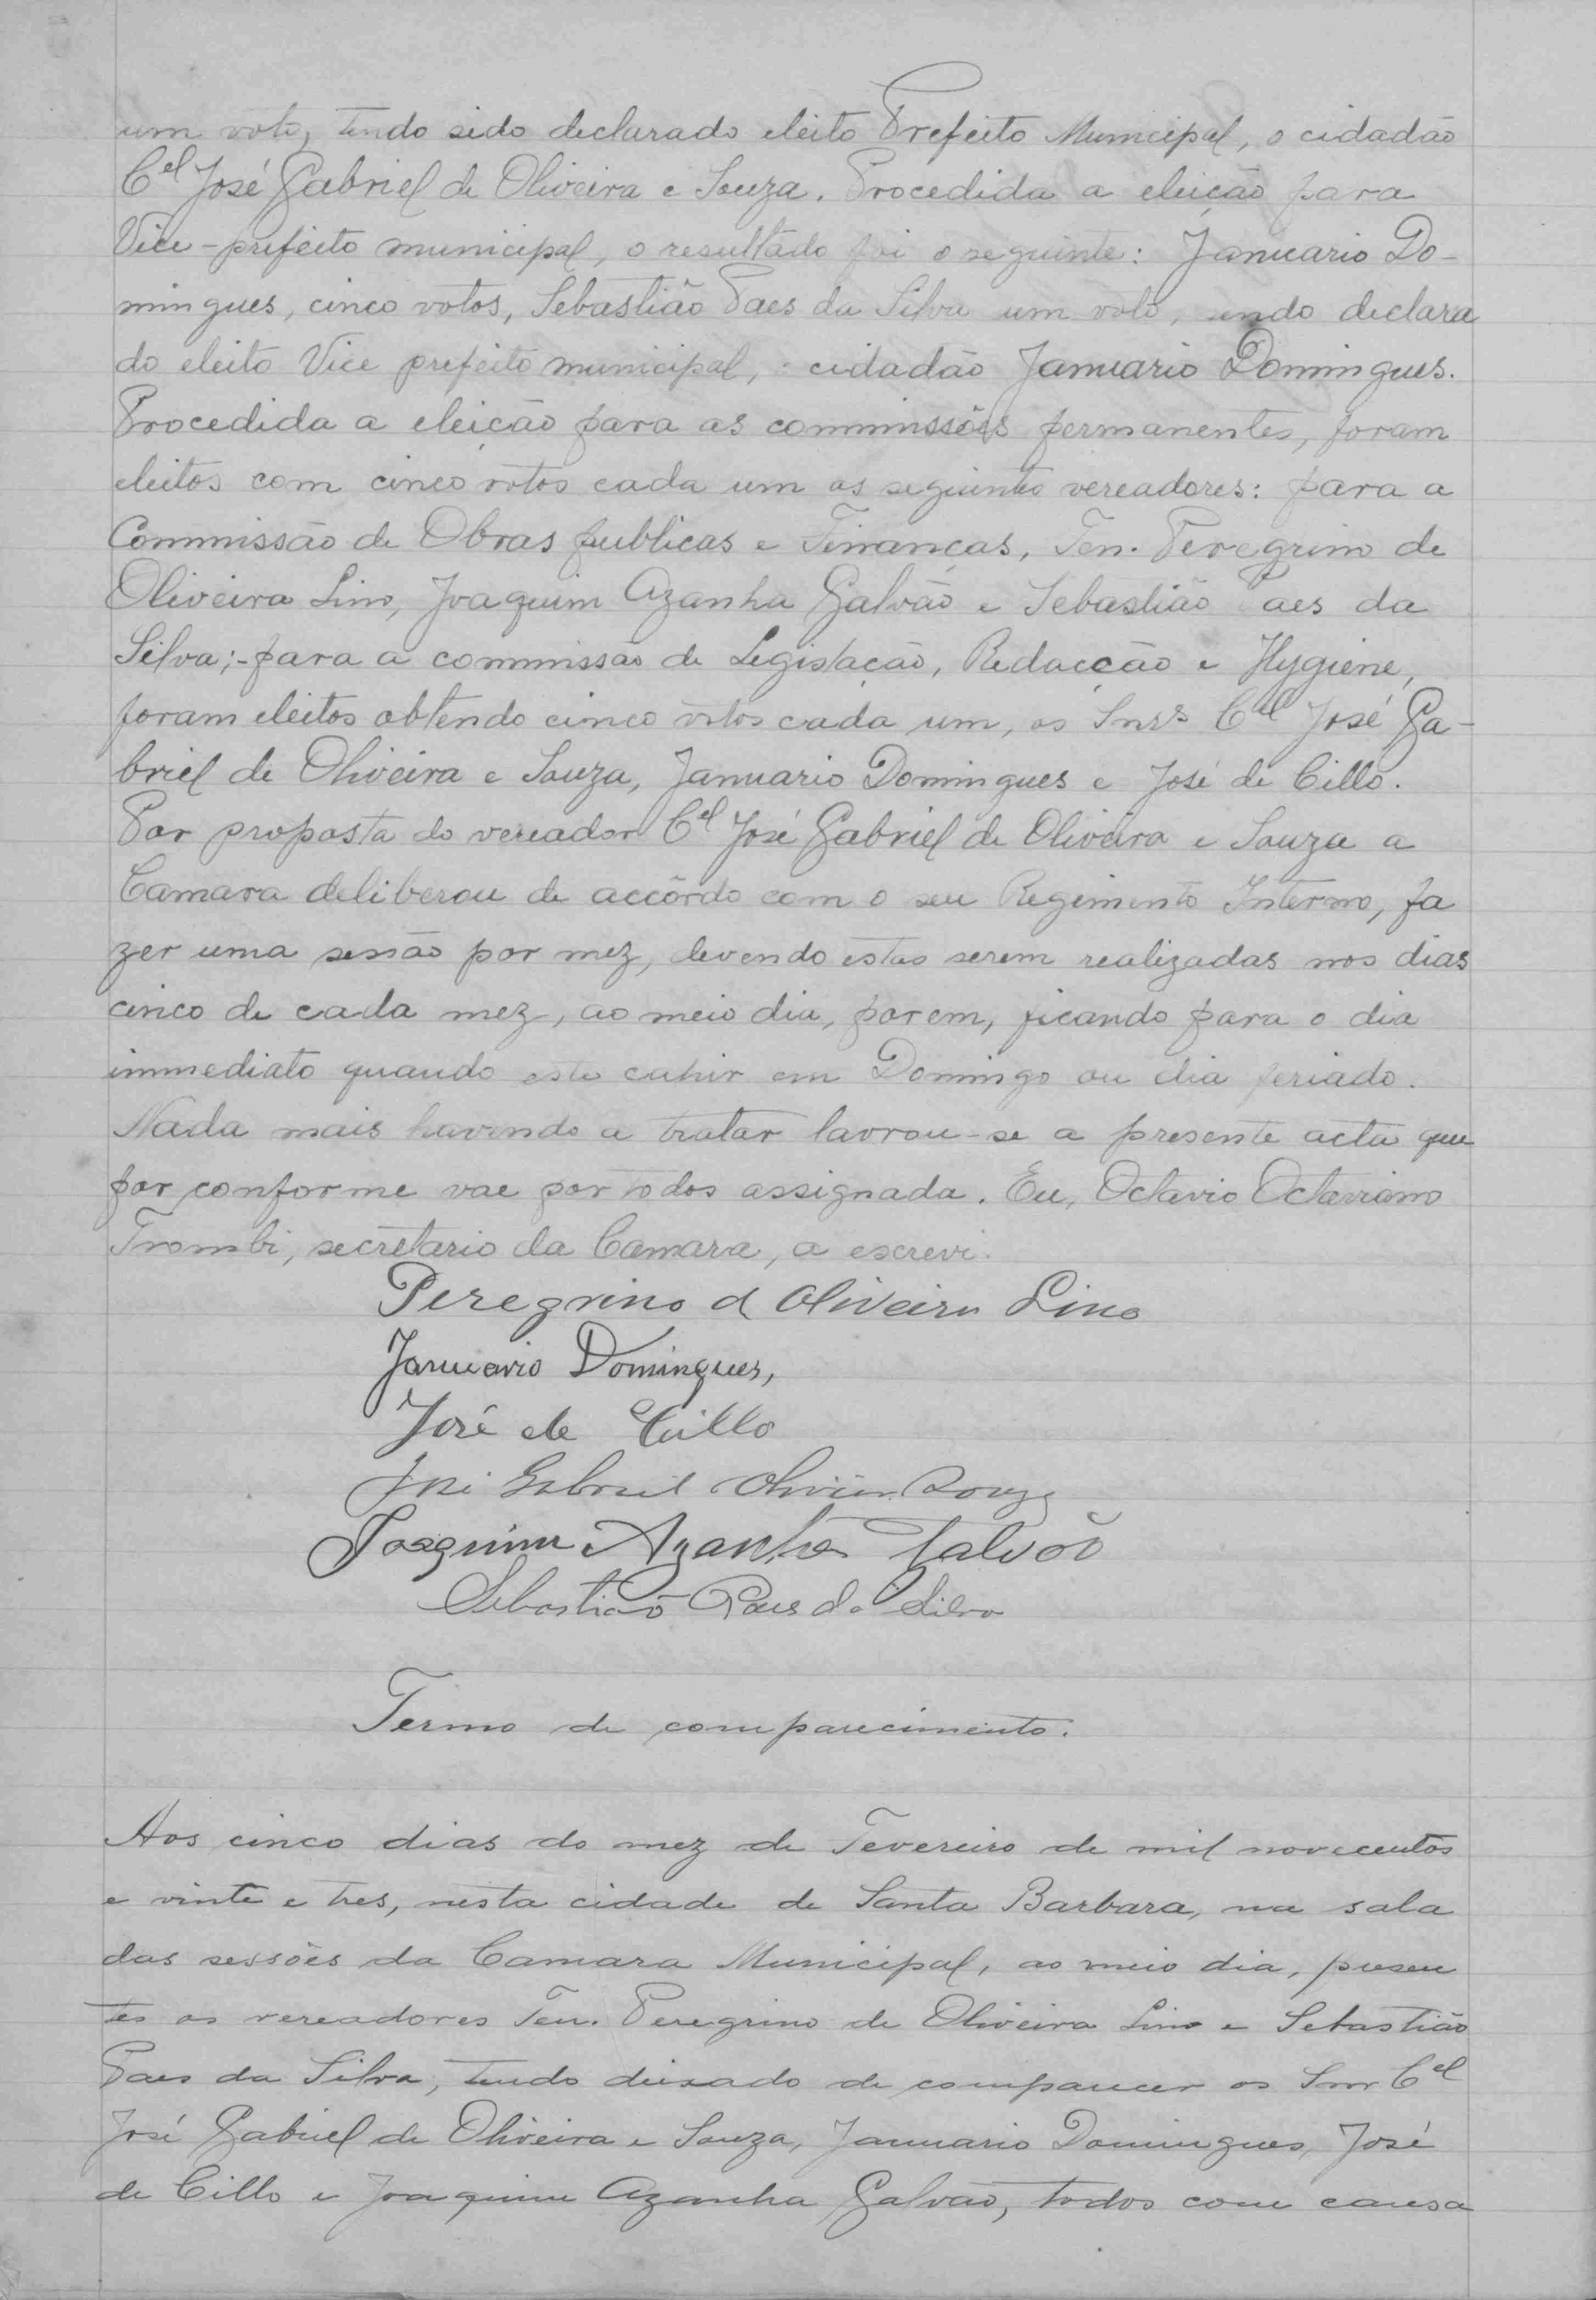 um voto, tendo sido declarado eleito Prefeito Municipal, o cidadão
Cel José Gabriel de Oliveira e Souza. Procedida a eleição para
Vice-prefeito municipal, o resultado foi o seguinte: Januario Do-
mingues, cinco votos, Sebastião Paes da Silva um voto, sendo declara
do eleito Vice prefeito municipal, o cidadão Januario Domingues.
Procedida a eleição para as commissões permanentes, foram
eleitos com cinco votos cada um os seguintes vereadores: para a
Commissão de Obras publicas e Finanças, Ten. Peregrino de
Oliveira Lino, Joaquim Azanha Galvão e Sebastião Paes da
Silva;-para a commissão de Legislação, Redacção e Hygiene,
foram eleitos obtendo cinco votos cada um, os Snrs Cel José Ga-
briel de Oliveira e Souza, Januario Domingues e José de Cillo.
Por proposta do vereador Cel José Gabriel de Oliveira e Souza a
Camara deliberou de accôrdo com o seu Regimento Interno, fa
zer uma sessão por mez, devendo estas serem realizadas nos dias
cinco de cada mez, ao meio dia, porem, ficando para o dia
immediato quando este cahir em Domingo ou dia feriado.
Nada mais havendo a tratar lavrou-se a presente acta que
por conforme vae por todos assignada. Eu, Octavio Octaviano
Trombi, secretario da Camara, a escrevi.
Peregrino d Oliveira Lino
Januario Domingues,
José de Cillo
José Gabriel Oliveira Souza
Joaquim Azanha Galvão
Sebastião Paes da Silva
Termo de comparecimento.
Aos cinco dias do mez de Fevereiro de mil novecentos
e vinte e tres, nesta cidade de Santa Barbara, na sala
das sessões da Camara Municipal, ao meio dia, presen
tes os vereadores Ten. Peregrino de Oliveira Lino e Sebastião
Paes da Silva, tendo deixado de comparecer os Snr Cel
José Gabriel de Oliveira e Souza, Januario Domingues, José
de Cillo e Joaquim Azanha Galvão, todos com causa